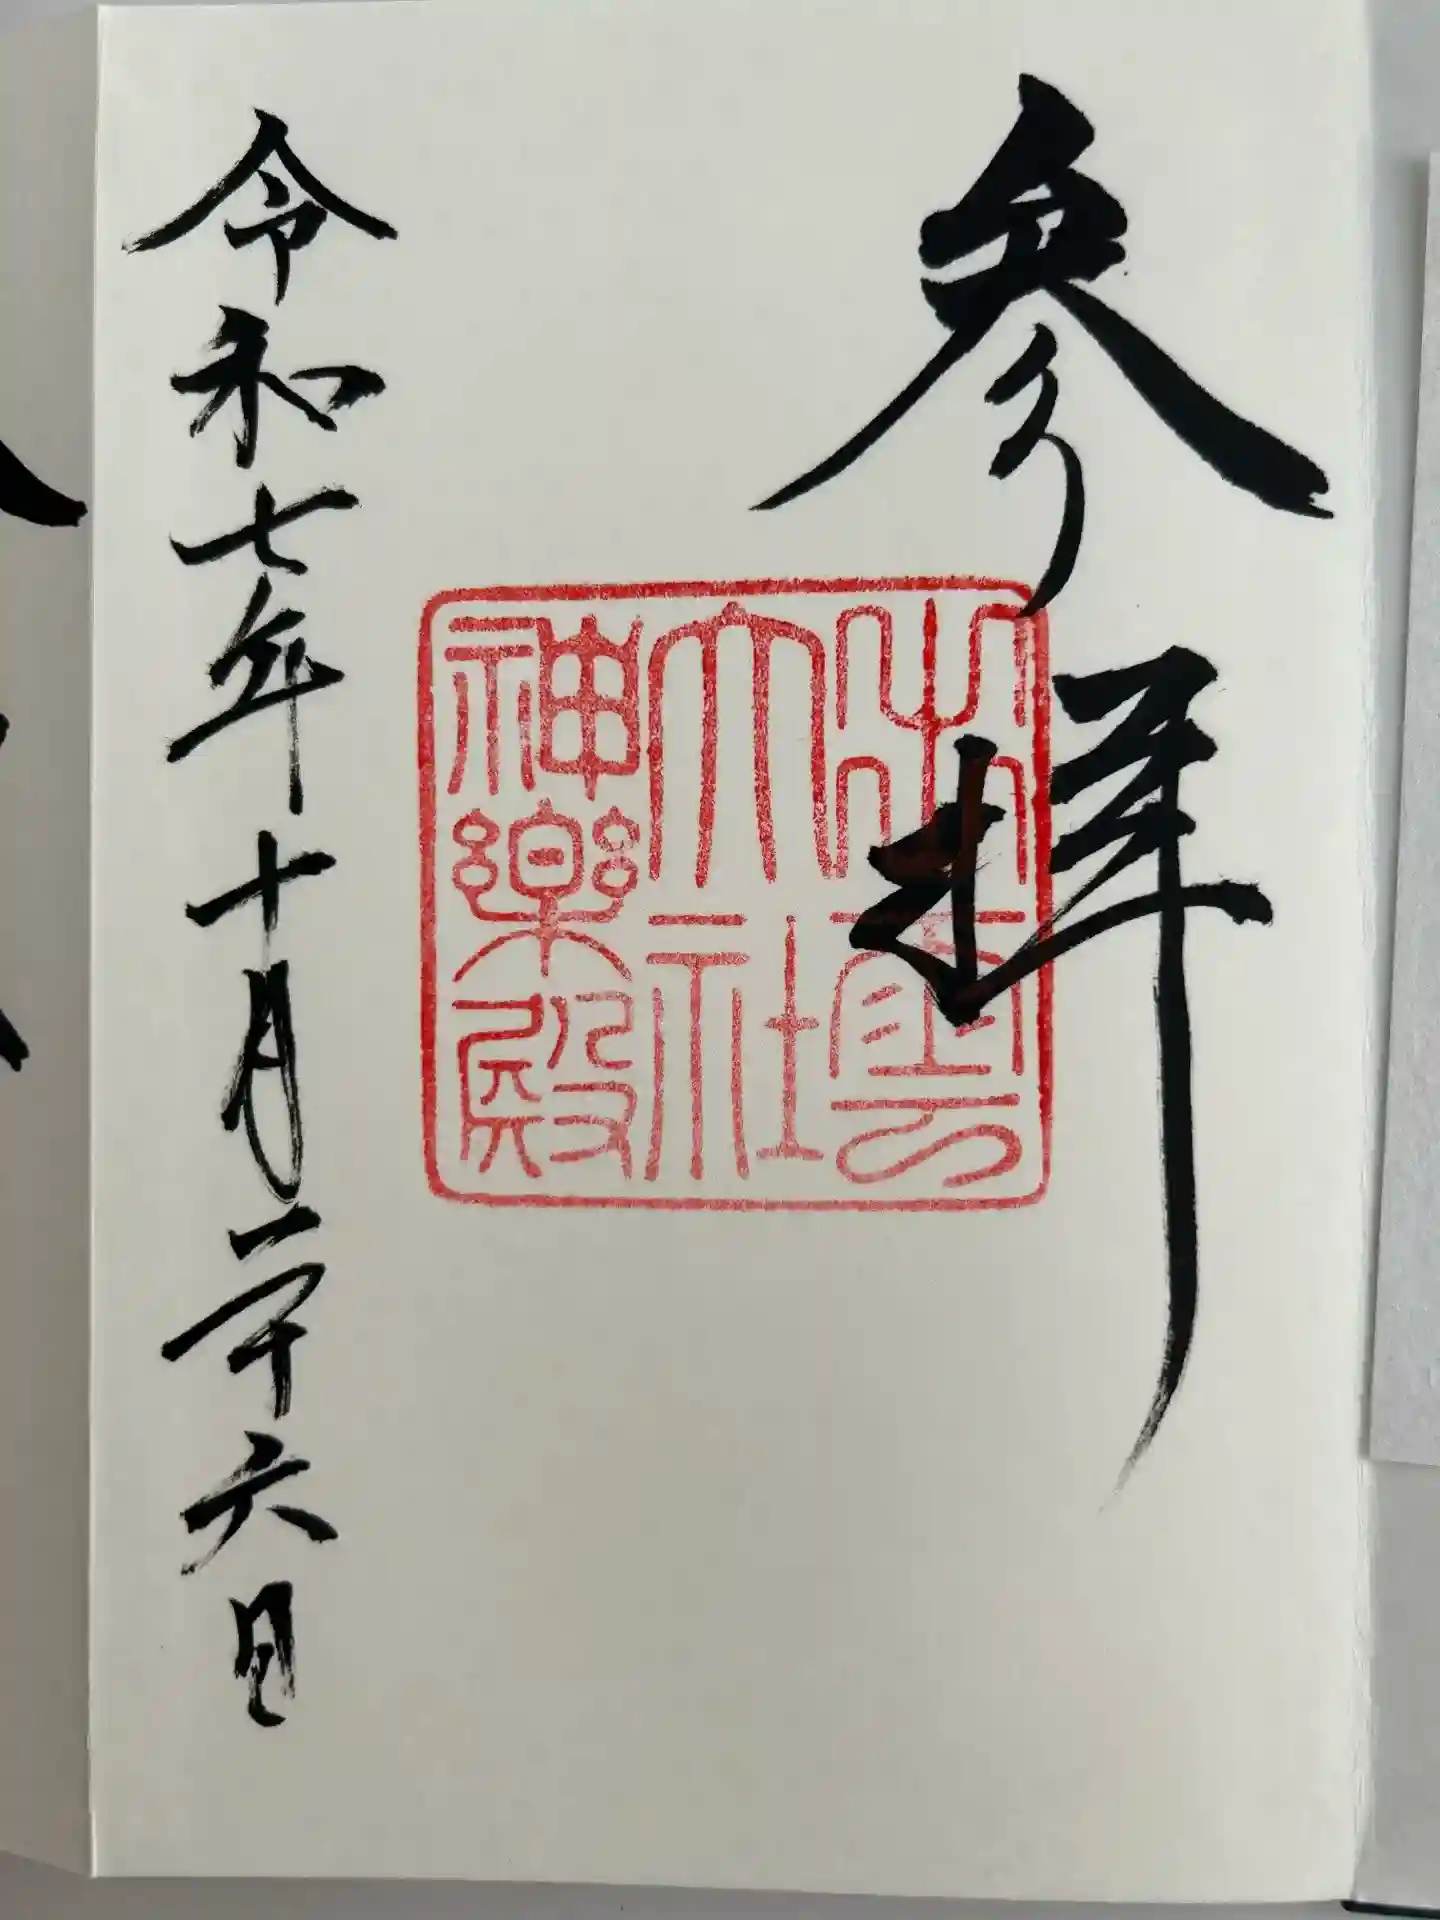 参拝
出雲
大社
神楽殿
令和七年十月二十六日